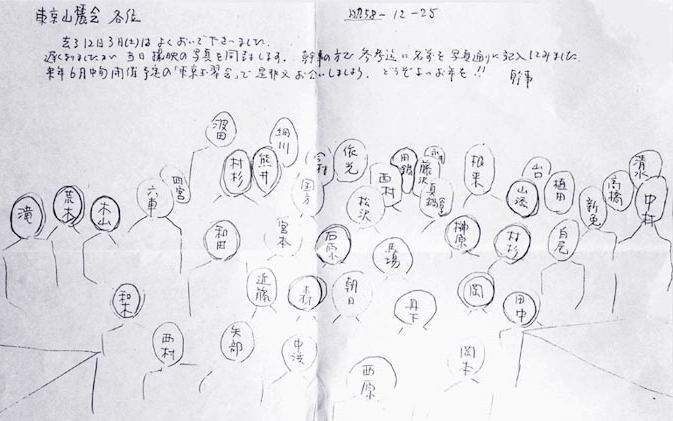 東京山麓会 各位
昭58-12-25
去る12月3日(土)はよくおいで下さいました。
遅くなりましたが 当日撮映の写真を同封します。 幹事の方で 参考迄に名前を写真通りに記入してみました
来年6月中旬開催予定の「東京六碧会」で是非又お会いしましょう。 どうぞよいお年を!!
幹事
波田
細川
村杉
熊井
依光
田鍋
藤沢
根来
山
清水
四宮
西村
真鍋
山添
植田
高橋
滝
荒木
木山
六車
国方
松沢
新免
中村
和田
宮本
石原
馬場
榊原
村杉
白尾
近藤
森
朝日
丹下
岡
田中
和木
西村
矢部
中浜
西原
岡本